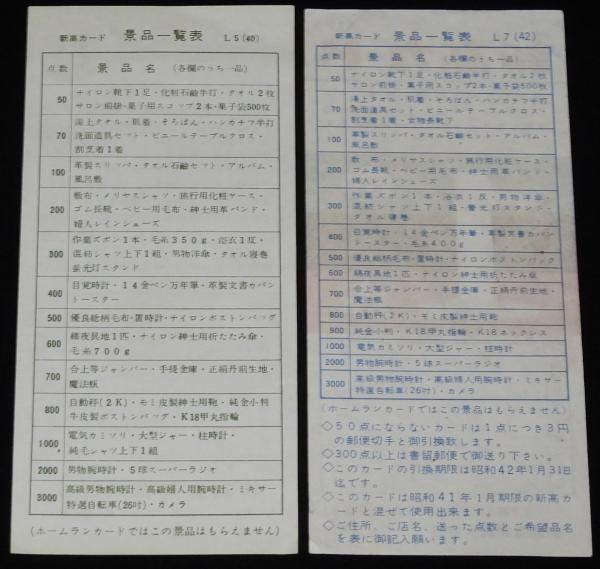 新高カード 景品一覧表 L5(40)
点数 景品名 (各欄のうち一品)
50 ナイロン靴下1足・化粧石鹸半打・タオル2枚
サロン前掛・菓子用スコップ2本・菓子袋500枚
70 湯上タオル・肌着・そろばん・ハンカチーフ半打
洗面道具セット・ビニールテーブルクロス・
割烹着1着
100 革製スリッパ・タオル石鹸セット・アルバム・
風呂敷
200 敷布・メリヤスシャツ・旅行用化粧ケース・
ゴム長靴・ベビー用毛布・紳士用革バンド・
婦人レインシューズ
300 作業ズボン1本・毛糸350g・浴衣1反・
混紡シャツ上下1組・男物洋傘・タオル寝巻
螢光灯スタンド
400 目覚時計・14金ペン万年筆・革製文書カバン
トースター
500 優良総柄毛布・置時計・ナイロンボストンバッグ
600 綿夜具地1匹・ナイロン紳士用折たたみ傘・
毛糸700g
700 合上等ジャンパー・手提金庫・正絹丹前生地・
魔法瓶
800 自動秤(2K)・モミ皮製紳士用靴・純金小判
牛皮製ボストンバッグ・K18甲丸指輪
1000 電気カミソリ・大型ジャー・柱時計・
純毛シャツ上下1組
2000 男物腕時計・5球スーパーラジオ
3000 高級男物腕時計・高級婦人用腕時計・ミキサー
特選自転車(26吋)・カメラ
(ホームランカードではこの景品はもらえません)
新高カード 景品一覧表 L7(42)
点数 景品名 (各欄のうち一品)
50 ナイロン靴下1足・化粧石鹸半打・タオル2枚
サロン前掛・菓子用スコップ2本・菓子袋500枚
70 湯上タオル・肌着・そろばん・ハンカチーフ半打
洗面道具セット・ビニールテーブルクロス・
割烹着1着・女物長靴下
100 革製スリッパ・タオル石鹸セット・アルバム・
風呂敷
200 敷布・メリヤスシャツ・旅行用化粧ケース・
ゴム長靴・ベビー用毛布・紳士用革バンド・
婦人レインシューズ
300 作業ズボン1本・浴衣1反・男物洋傘・
混紡シャツ上下1組・螢光灯スタンド・
タオル寝巻
400 目覚時計・14金ペン万年筆・革製文書カバン
トースター・毛糸400g
500 優良総柄毛布・置時計・ナイロンボストンバック
600 綿夜具地1匹・ナイロン紳士用折たたみ傘
700 合上等ジャンパー・手提金庫・正絹丹前生地・
魔法瓶
800 自動秤(2K)・モミ皮製紳士用靴
900 純金小判・K18甲丸指輪・K18ネックレス
1000 電気カミソリ・大型ジャー・柱時計
2000 男物腕時計・5球スーパーラジオ
3000 高級男物腕時計・高級婦人用腕時計・ミキサー
特選自転車(26吋)・カメラ
(ホームランカードではこの景品はもらえません)
◇50点にならないカードは1点につき3円
の郵便切手と御引換致します。
◇300点以上は書留郵便で御送り下さい。
◇このカードの引換期限は昭和42年1月31日
迄です。
◇このカードは昭和41年1月期限の新高カ
ードと混ぜて使用出来ます。
◇ご住所、ご店名、送った点数とご希望品名
を表に御記入願います。